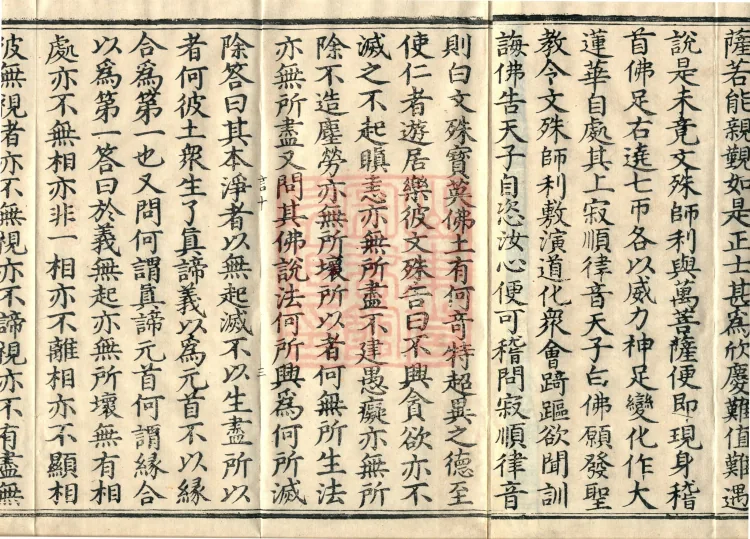 薩若能親覲如是正士甚爲欣慶難值難遇
說是未竟文殊師利與萬菩薩便即現身稽
首佛足右遶七帀各以威力神足變化作大
蓮華自處其上寂順律音天子白佛願發聖
教令文殊師利敷演道化衆會踦䠧欲聞訓
誨佛告天子自恣汝心便可稽問寂順律音
則白文殊寶英佛土有何奇特超異之德至
使仁者遊居樂彼文殊告曰不興貪欲亦不
滅之不起瞋恚亦無所盡不建愚癡亦無所
除不造塵勞亦無所壞所以者何無所生法
亦無所盡又問其佛說法何所興爲何所滅
言十 三
除答曰其本淨者以無起滅不以生盡所以
者何彼土衆生了眞諦義以爲元首不以緣
合爲第一也又問何謂眞諦元首何謂緣合
以爲第一答曰於義無起亦無所壞無有相
處亦不無相亦非一相亦不離相亦不顯相
彼無視者亦不無視亦不諦視亦不有盡無